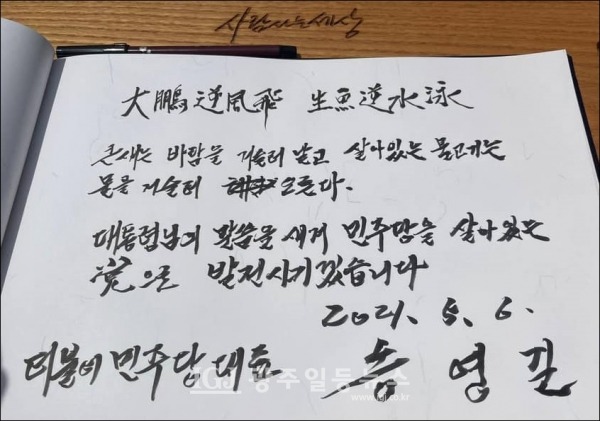 사람사는세상
大鵬逆風飛 生魚逆水泳
큰새는 바람을 거슬러 날고 살아있는 물고기는
물을 거슬러 오른다.
대통령님의 말씀을 새겨 민주당을 살아있는
党으로 발전시키겠습니다
2021. 5. 6.
더불어민주당 대표 송영길
IGJ 광주일등뉴스
igj.co.kr